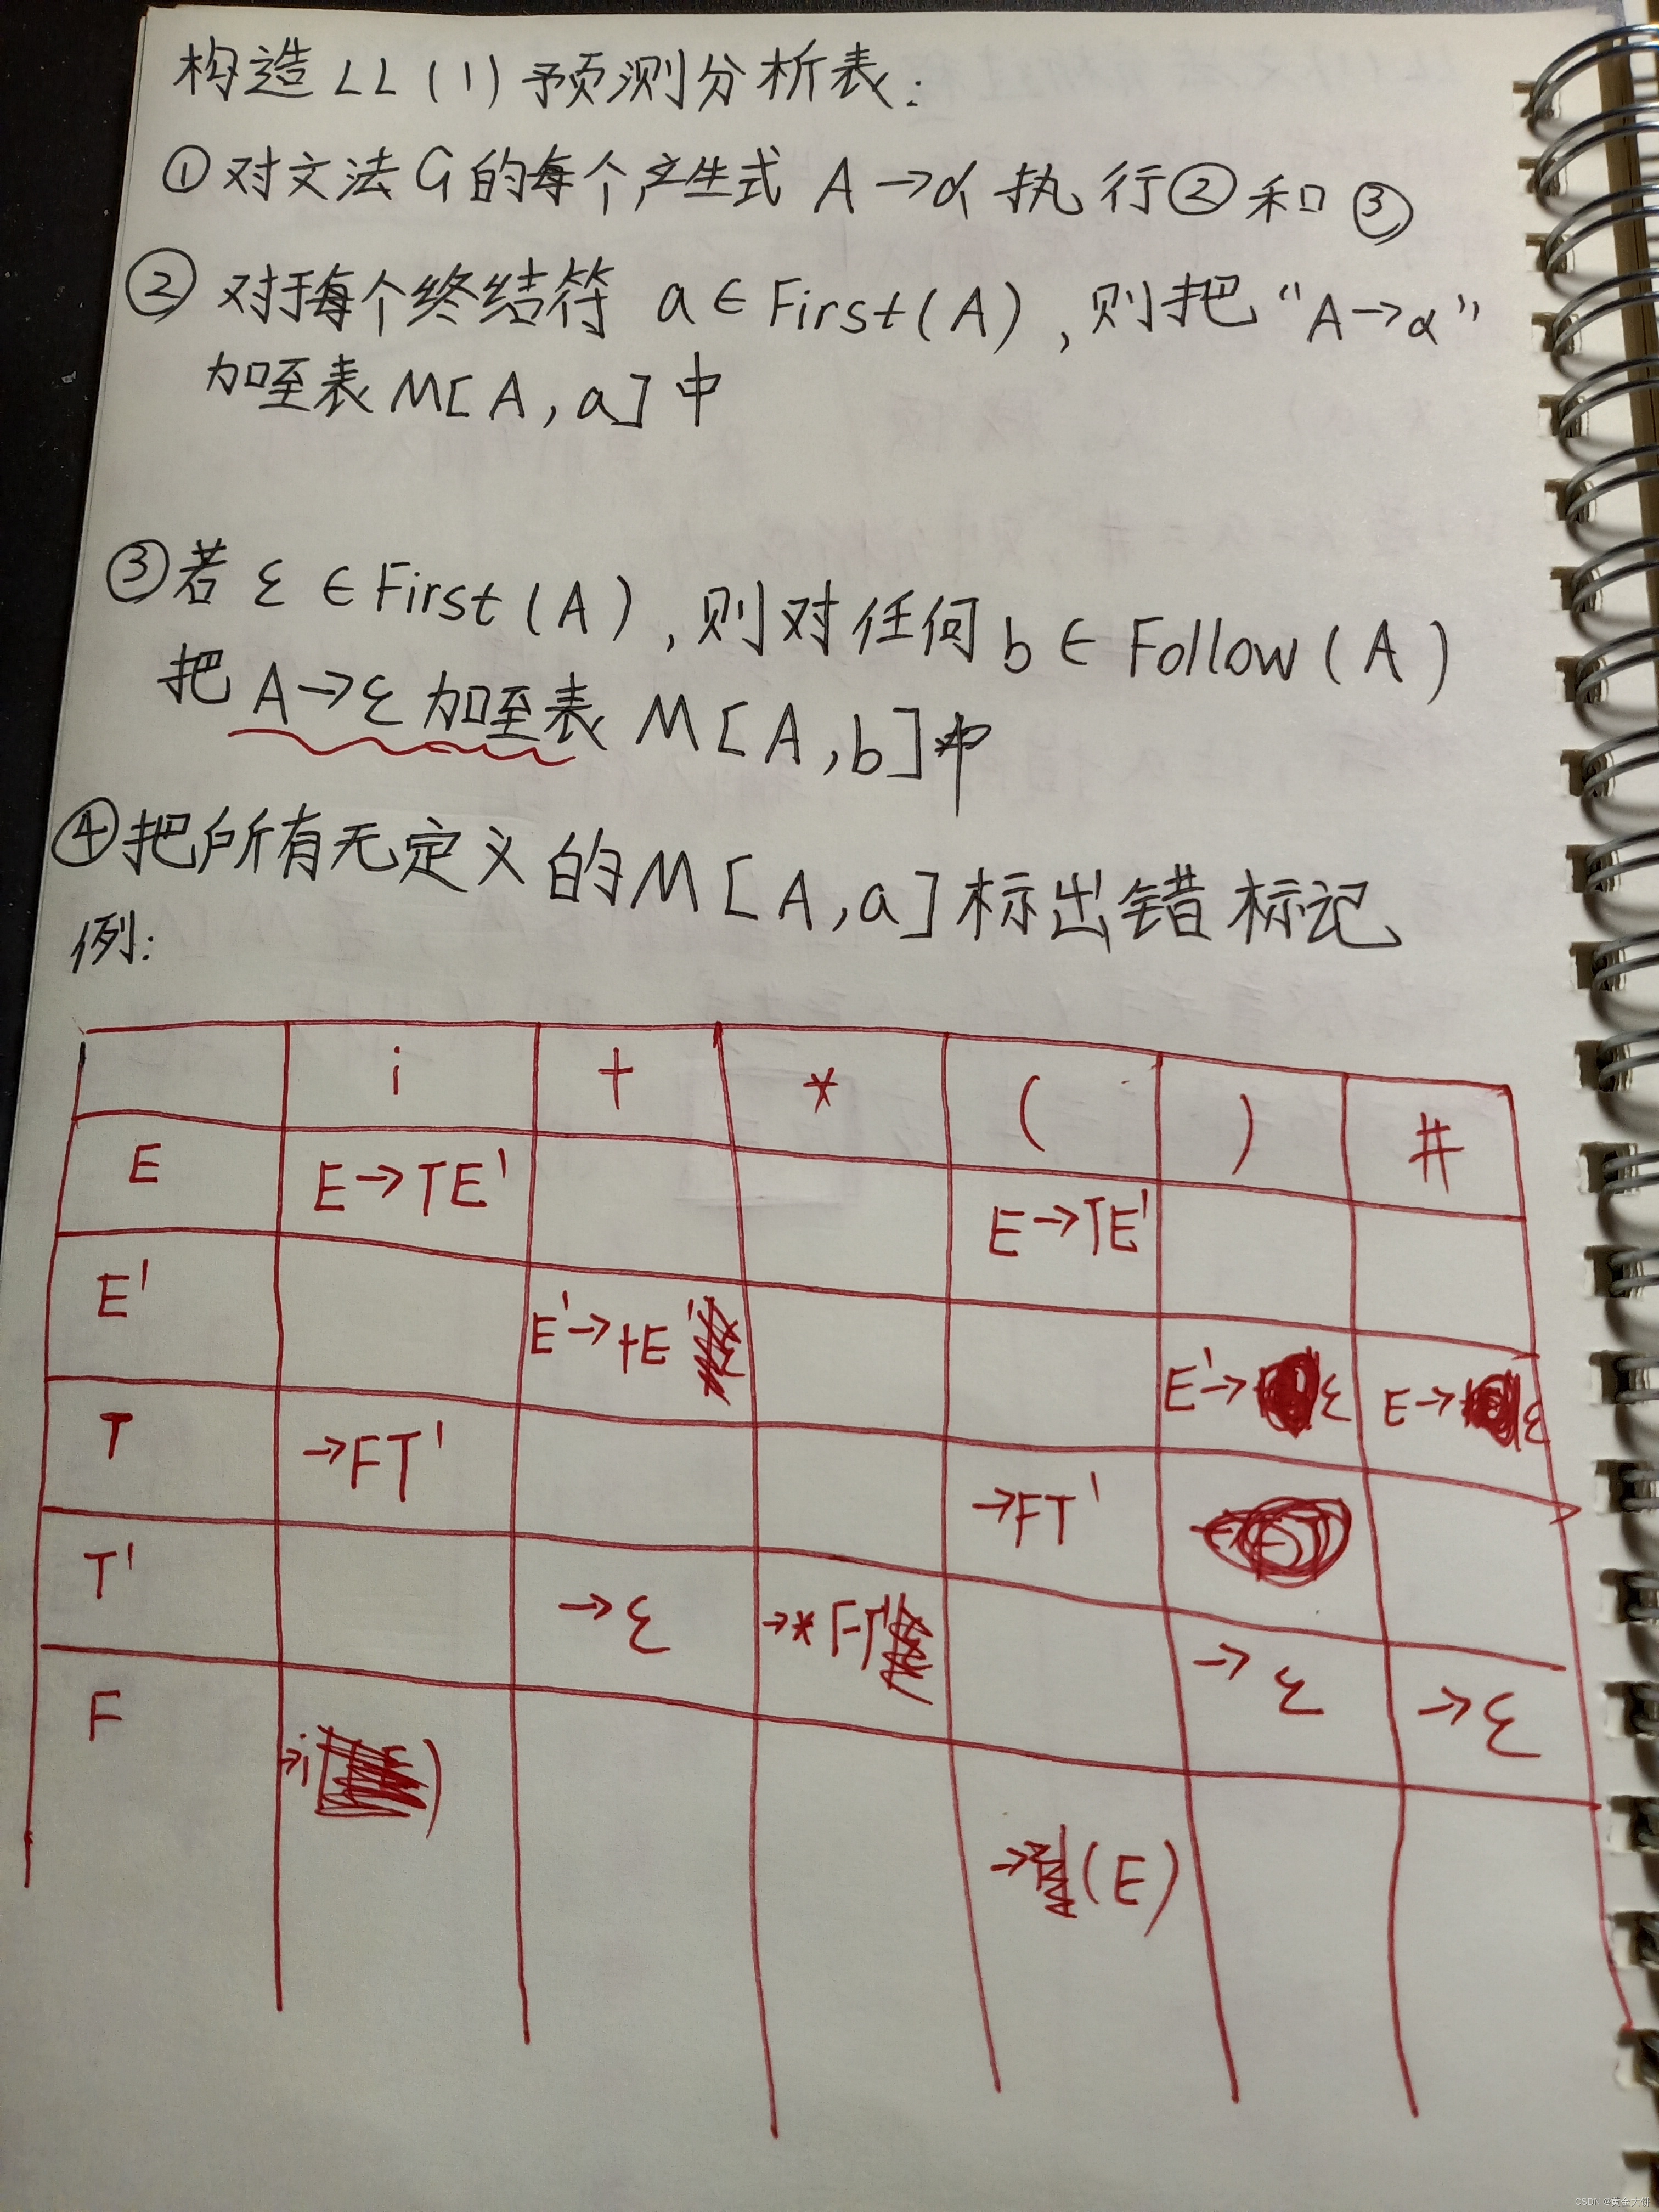 构造LL(1)预测分析表:
①对文法G的每个产生式 A→α 执行②和③
②对于每个终结符 a∈First(A),则把“A→α”
加至表M[A,a]中
③若ε∈First(A),则对任何b∈Follow(A)
把A→ε加至表M[A,b]中
④把所有无定义的M[A,a]标出错标记
例:
i + * ( ) #
E E→TE' E→TE'
E' E'→+E' E'→ε E→ε
T →FT' →FT'
T' →ε →*FT' →ε →ε
F →i ) →(E)
CSDN @黄金大饼